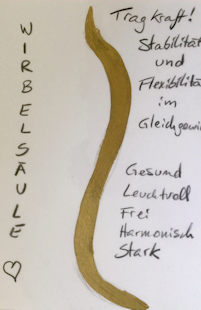 WIRBELSÄULE
Tragkraft!
Stabilität
und
Flexibilität
im
Gesund
Leuchtvoll
Frei
Harmonisch
Stark